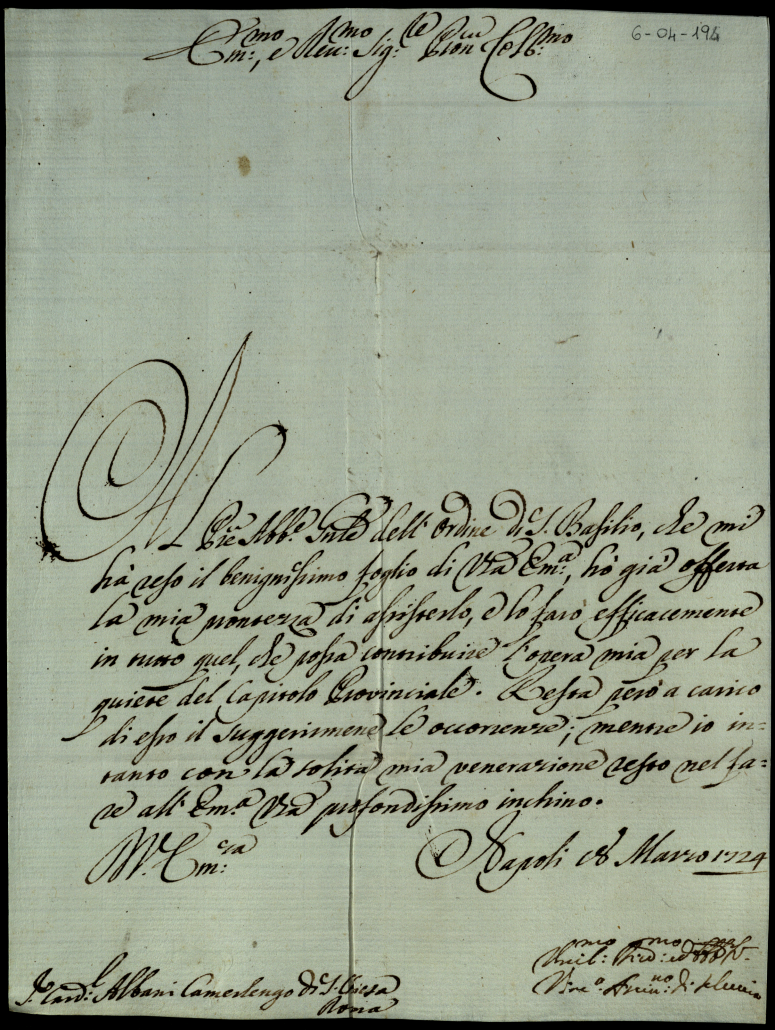 Em:mo, e Reu:mo Sig:re Pron Col:mo
6-04-194
Al P're Abb.e Gn'le dell' Ordine di S. Basilio, che mi
hà reso il benignissimo foglio di Vr̃a Em.a, hò già offerta
la mia prontezza di assisterlo, e lo farò efficacemente
in tutto quel, che possa contribuire l'opera mia per la
quiete del Capitolo Provinciale. Resta però a carico
di esso il suggerirmene le occorrenze; mentre io in=
tanto con la solita mia venerazione resto nel fa=
re all' Em.a Vr̃a profondissimo inchino.
Em:za
Napoli 18 Marzo 1724
Vmil:mo
Vinc.o
S.r Card.l Albani Camerlengo di S. Chiesa
Roma